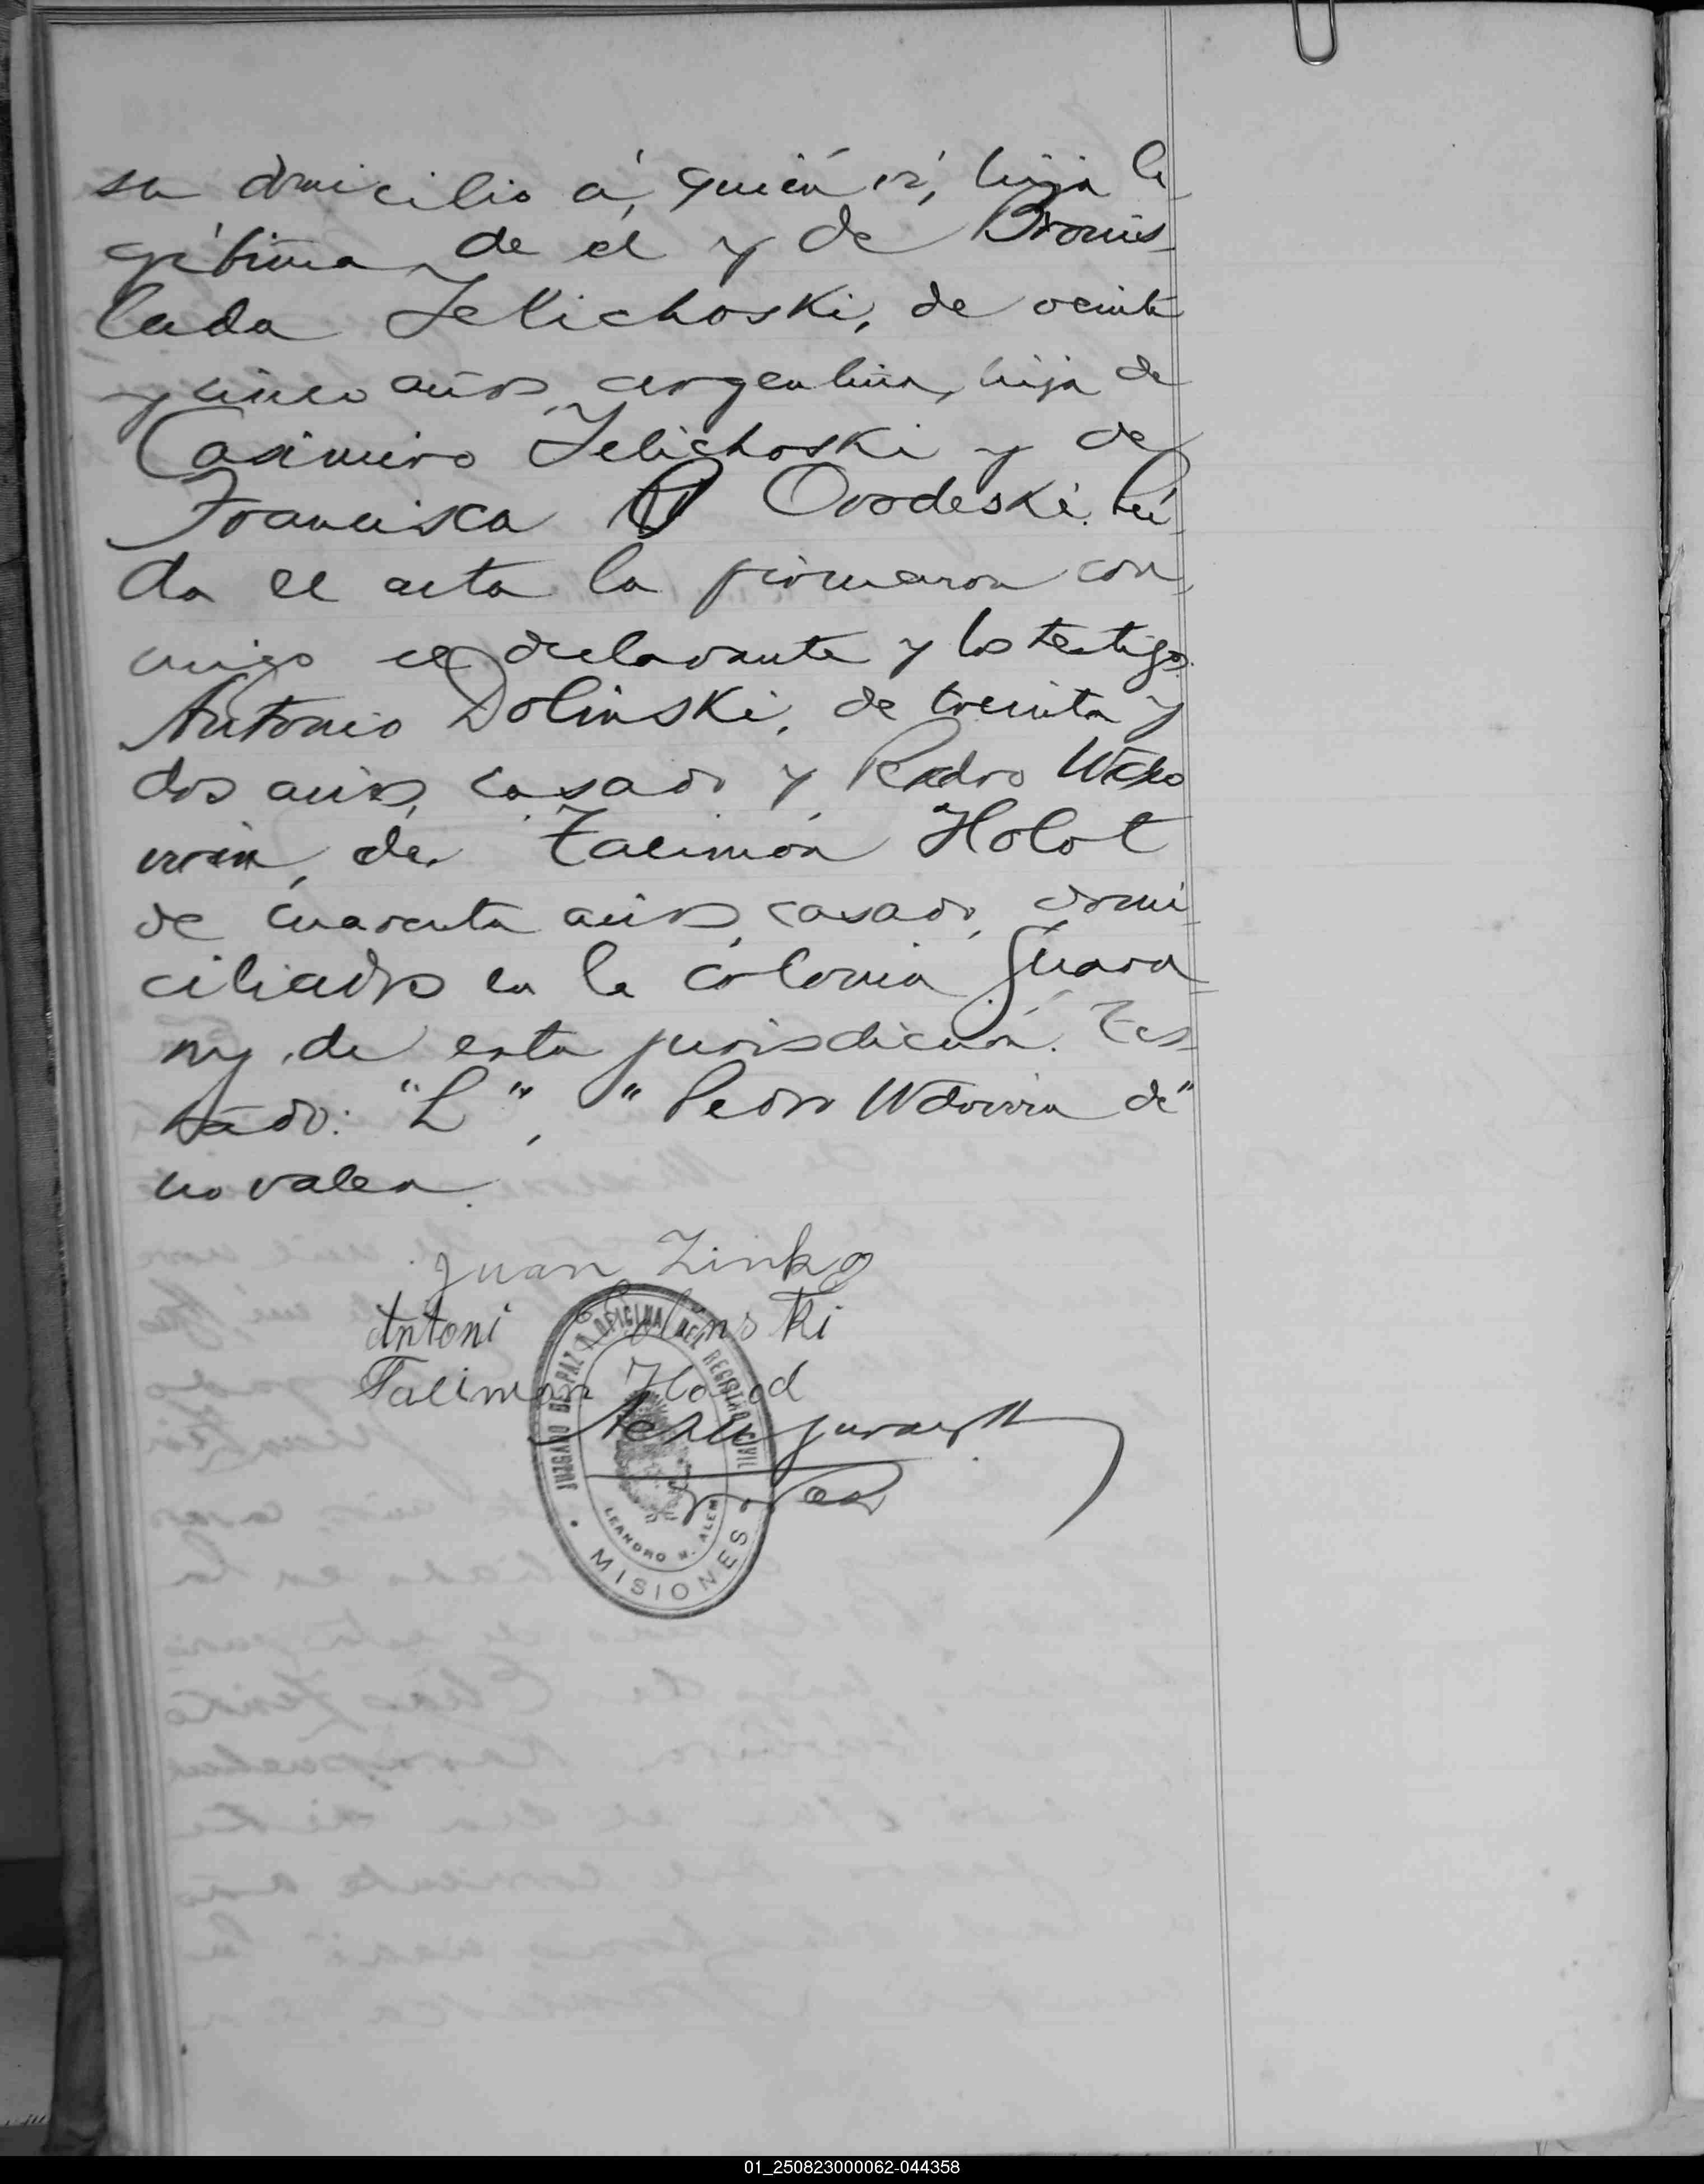 su domicilio á, quién es, hija le
gítima de el y de Bronis
lada Zelichoski, de veinte
y cinco años, argentina, hija de
Casimiro Zelichoski y de
Francisca Ovodeski. Leí
da el acta la firmaron con
migo el declarante y los testigos
Antonio Dolinski, de treinta y
dos años, casado y Pedro Wdo
win, de Talimón Holot
de cuarenta años, casado, domi
ciliados en la colonia Guara
ny, de esta jurisdicción. Tes
tado: "L", "Pedro Wdowin de"
no valen.
Juan Zinko
Antoni Dolinski
Talimon Holod
JUZGADO DE PAZ Y OFICINA DEL REGISTRO CIVIL
LEANDRO N. ALEM
MISIONES
01_250823000062-044358